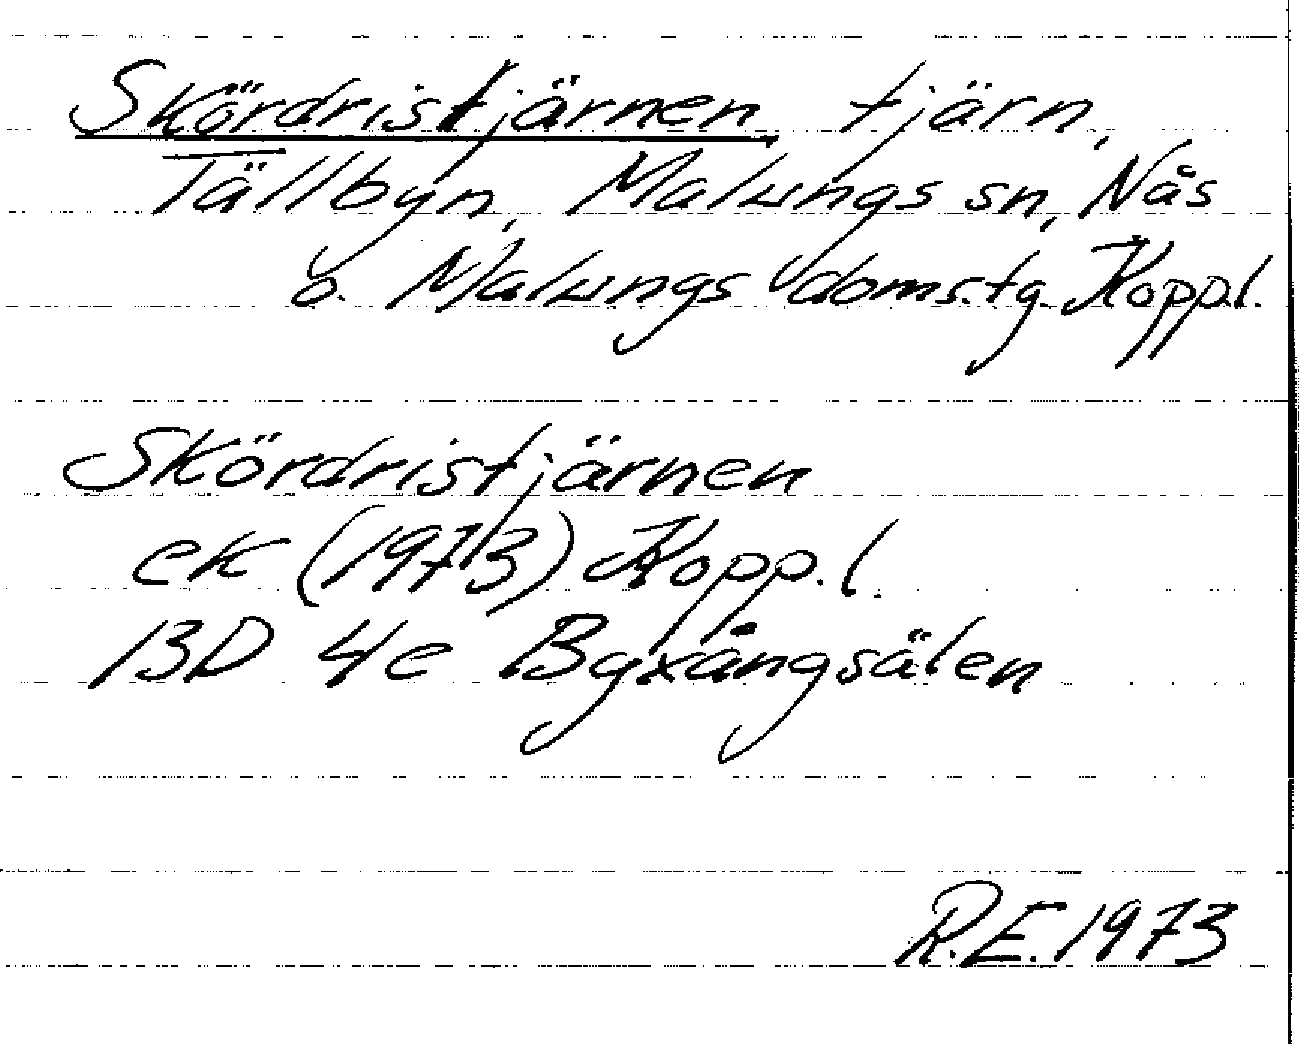 Skördristjärnen tjärn,
Tällbyn, Malungs sn, Nås
o. Malungs domstg. Kopp.l.
Skördristjärnen
ek (1973) Kopp.l.
13D 4e Byxångsälen
R.E. 1973